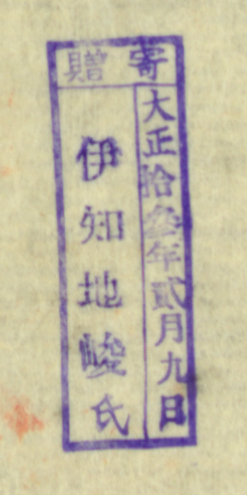 寄贈
大正拾叁年貳月九日
伊知地峻氏